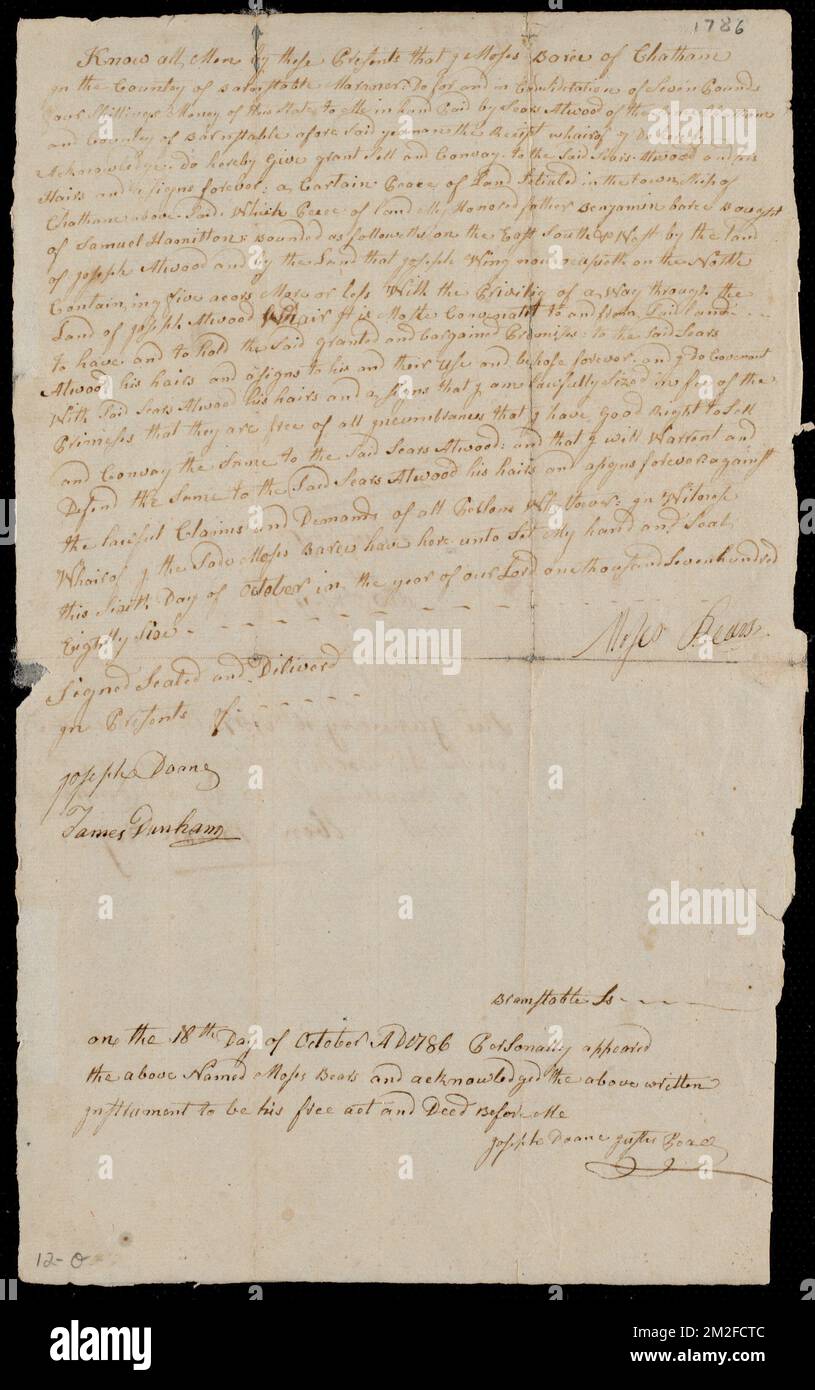 1786
Know all Men by these Presents that I Moses Barce of Chatham
in the Countey of Barnstable Marener: Do for and in Considetation of Seven Pound
four Shillings Money of this State to Me in hand Paid by Sears Atwood of the
and Countey of Barnstable afore Said yeoman the Recept whairof I Do
Acknowledge: do hereby Give grant Sell and Convay: to the Said Sears Atwood and his
Hairs and asigns forever: a Certain Peace of Land Setiated in the town
Chatham above Said. Which Peece of land My Honored father Benjamin barce Bought
of Samuel Hamilton: Bounded as followeth: on the East South & West by the land
of Joseph Atwood and by the Land that Joseph Wing now on the North
Contain,ing five acors More or less With the Privilig of a Way through the
Land of Joseph Atwood Whair it is Moste Conveniant to and from Said land
to have and to hold the Said granted and bargained Premises: to the Said Sears
Atwood his hairs and asigns to his and their Use and behofe forever: and I do Covenant
With Said Sears Atwood his hairs and asigns that I am lawfully Sized in fee of the
Primeses that they are free of all Incumbrances that I have good Right to Sell
and Convay the Same to the Said Sears Atwood: and that I will Warrent and
Defend the Same to the Said Sears Atwood his hairs and asigns forever against
the lawful Claims and Demands of all Persons Whatsoever: In Witness
Whairof I the Sade Moses Barce have here unto Set My hand and Seal
this Sixth Day of October in the year of our Lord one thousand Seven hundred
Eightty Six
Moses Bears
Signed Sealed and Deliverd
in Presents of
Joseph Doane
James Dunham
Barnstable Ss
on the 18th Day of October AD 1786 Personally appeared
the above Named Moses Bears and acknowledged the above written
Instrument to be his free act and Deed Before Me
Joseph Doane Justes Peace
12-O
a
alamy
Image ID: 2M2FCTC
www.alamy.com